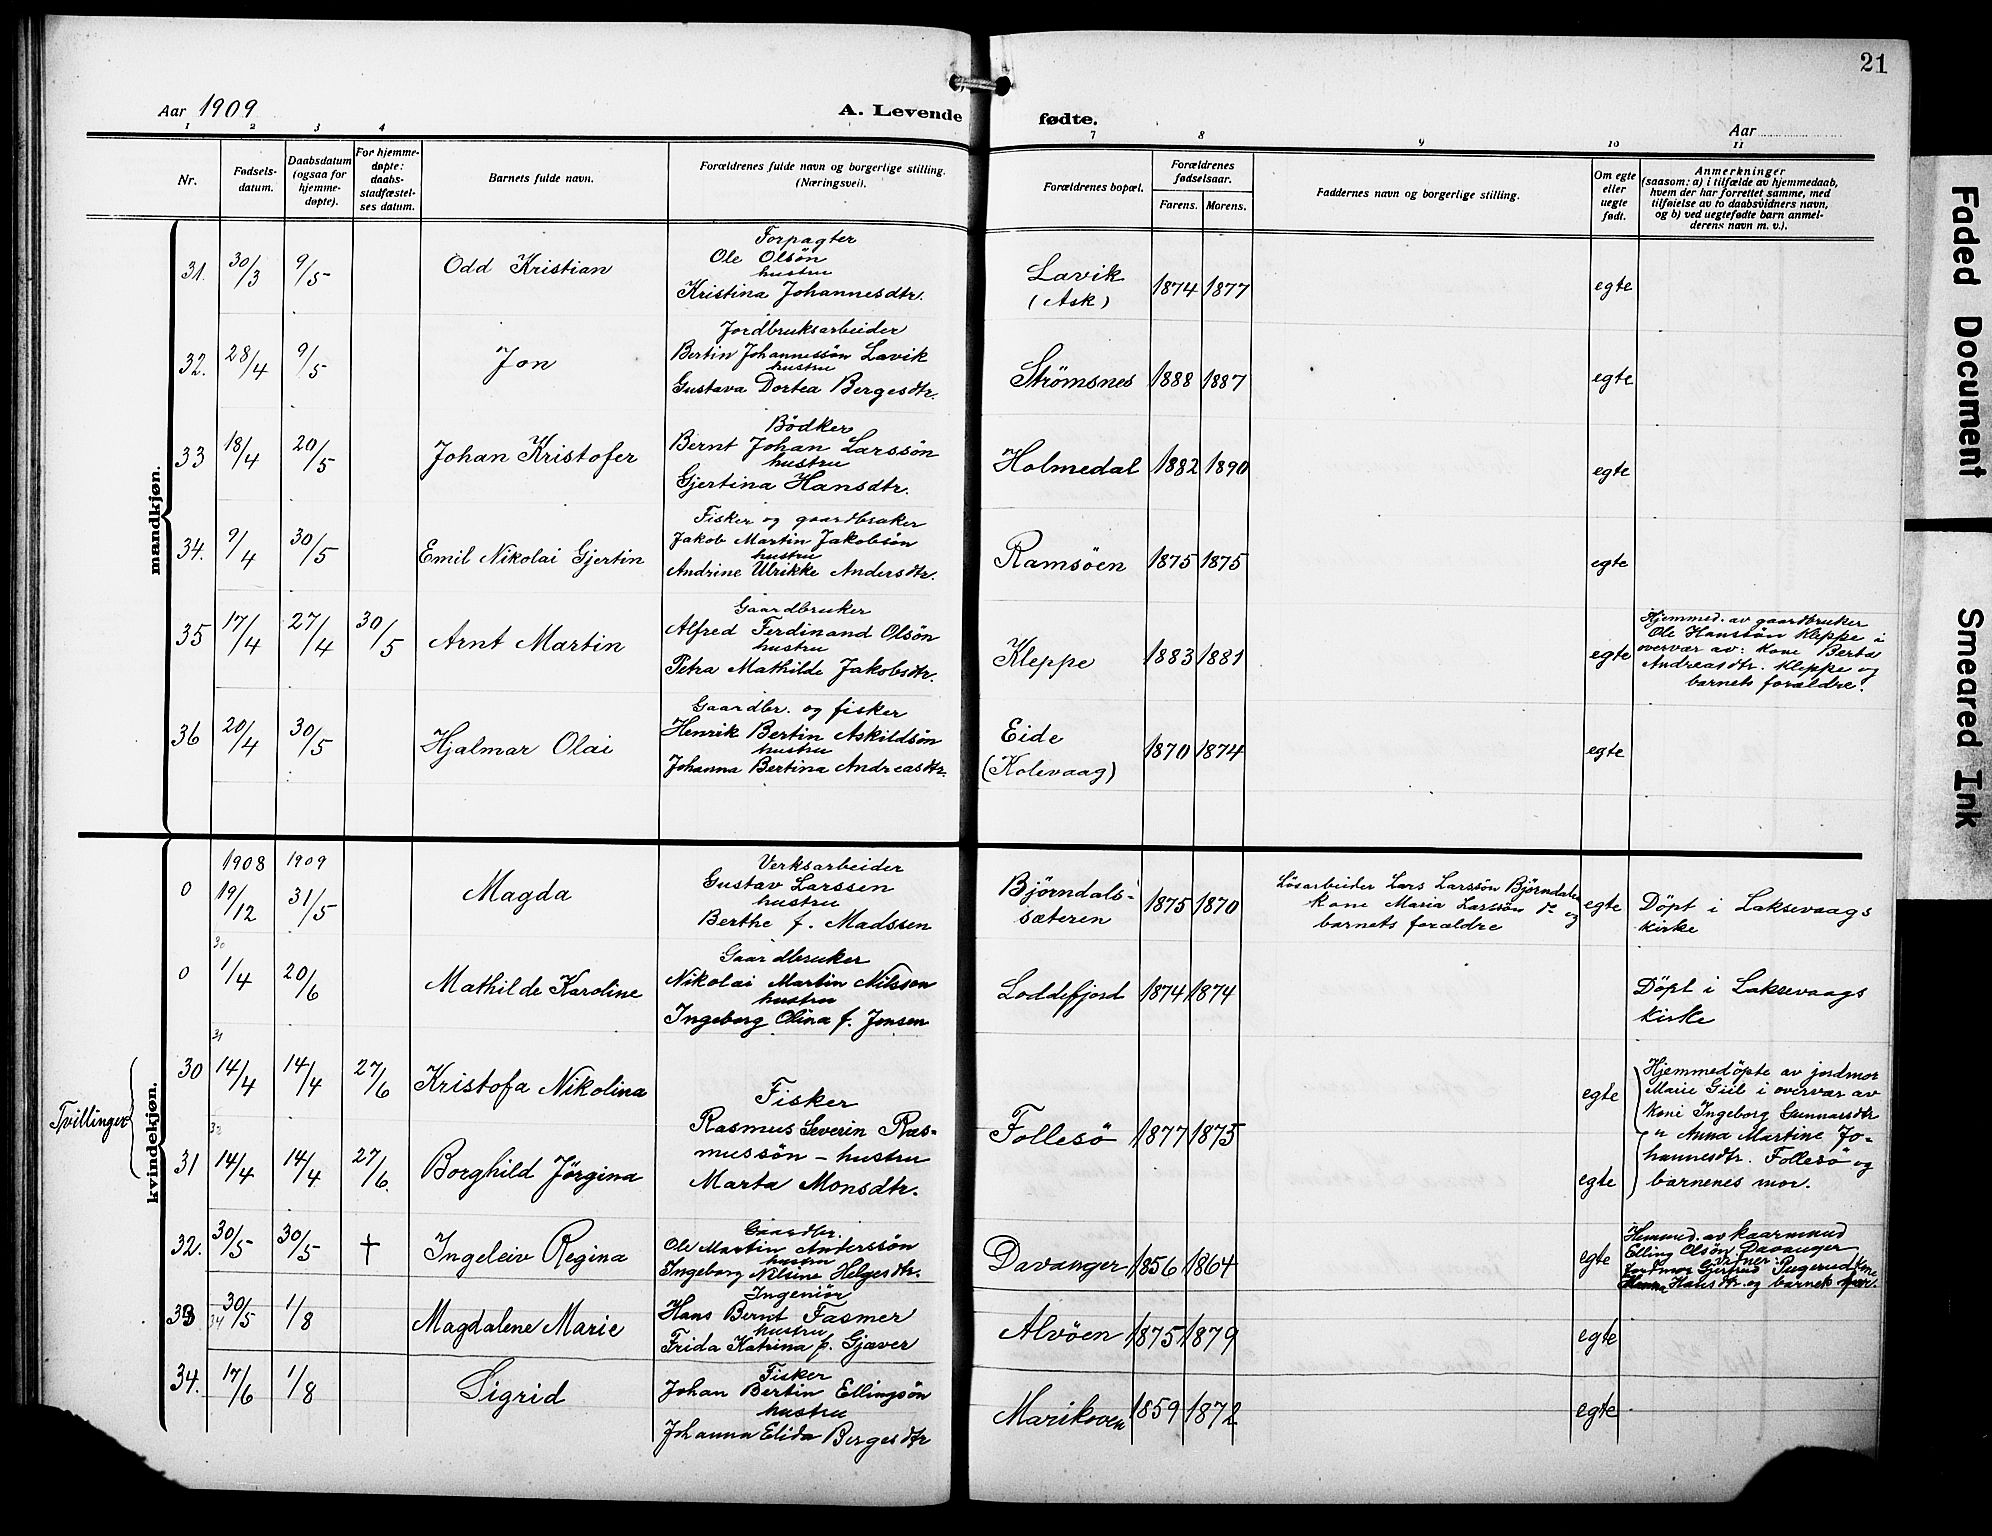 21
Aar 1909
A. Levende fødte.
Aar
1 2 3 4 7 8 9 10 11
Nr.
Fødsels-
datum.
Daabsdatum
(ogsaa for
hjemme-
døpte).
For hjemme-
døpte:
daabs-
stadfæstel-
ses datum.
Barnets fulde navn.
Forældrenes fulde navn og borgerlige stilling.
(Næringsvei).
Forældrenes bopæl.
Forældrenes
fødselsaar.
Farens. Morens.
Faddernes navn og borgerlige stilling.
Om egte
eller
uegte
født.
Anmerkninger
(saasom: a) i tilfælde av hjemmedaab,
hvem der har forrettet samme, med
tilføielse av to daabsvidners navn,
og b) ved uegtefødte barn anmel-
derens navn m. v.).
mandkjøn.
31. 30/3 9/5 Odd Kristian
Forpagter
Ole Olsön
hustru
Kristina Johannesdtr.
Lavik
(Ask)
1874 1877 egte
32. 28/4 9/5 Jon
Jordbruksarbeider
Bertin Johannessön Lavik
hustru
Gustava Dortea Bergesdtr.
Strömsnes 1888 1887 egte
33 18/4 20/5 Johan Kristofer
Bödker
Bernt Johan Larssön
hustru
Gjertina Hansdtr.
Holmedal 1882 1890 egte
34. 9/4 30/5 Emil Nikolai Gjertin
Fisker og gaardbruker
Jakob Martin Jakobsön
hustru
Andrine Ulrikke Andersdtr.
Ramsöen 1875 1875 egte
35 17/4 27/4 30/5 Arnt Martin
Gaardbruker
Alfred Ferdinand Olsön
hustru
Petra Mathilde Jakobsdtr.
Kleppe 1883 1881 egte
Hjemmed. av gaardbruker
Ole Hanssön Kleppe i
overvær av: kone Berta
Andreasdtr. Kleppe og
barnets forældre.
36 20/4 30/5 Hjalmar Olai
Gaardbr. og fisker
Henrik Bertin Askildsön
hustru
Johanna Bertina Andreasdtr.
Eide
(Kolevaag)
1870 1874 egte
kvindekjøn.
1908 1909
0 19/12 31/5 Magda
Verksarbeider
Gustav Larssen
hustru
Berthe f. Madssen
Björndals-
sæteren
1875 1870
Lösarbeider Lars Larssön Björndalen
kone Maria Larssön do og
barnets forældre
egte
Döpt i Laksevaags
kirke
30
0 1/4 20/6 Mathilde Karoline
Gaardbruker
Nikolai Martin Nilssen
hustru
Ingeborg Olina f. Jensen
Loddefjord 1874 1874
Döpt i Laksevaags
kirke
31
Tvillinger
30 14/4 14/4 27/6 Kristofa Nikolina
Fisker
Rasmus Severin Ras-
mussön – hustru
Marta Monsdtr.
Follesö 1877 1875 egte
Hjemmedöpte av jordmor
Marie Giil i overvær av
kone Ingeborg Gunnarsdtr
" Anna Martine Jo-
hannesdtr. Follesö og
barnenes mor.
32
31 14/4 14/4 27/6. Borghild Jörgina egte
32. 30/5 30/5 † Ingeleiv Regina
Gaardbr.
Ole Martin Anderssön
hustru
Ingeborg Nilsine Helgesdtr.
Davanger 1856 1864 egte
av kaarmand
Elling Olsön Davanger
Hansdtr. og barnets
33 34 30/5 1/8 Magdalene Marie
Ingeniör
Hans Bernt Fasmer
hustru
Frida Katrina f. Gjæver
Alvöen 1875 1879 egte
34. 17/6 1/8 Sigrid
Fisker
Johan Bertin Ellingsön
hustru
Johanna Elida Bergesdtr
Marikoven 1859 1872 egte
Faded Document
Smeared Ink